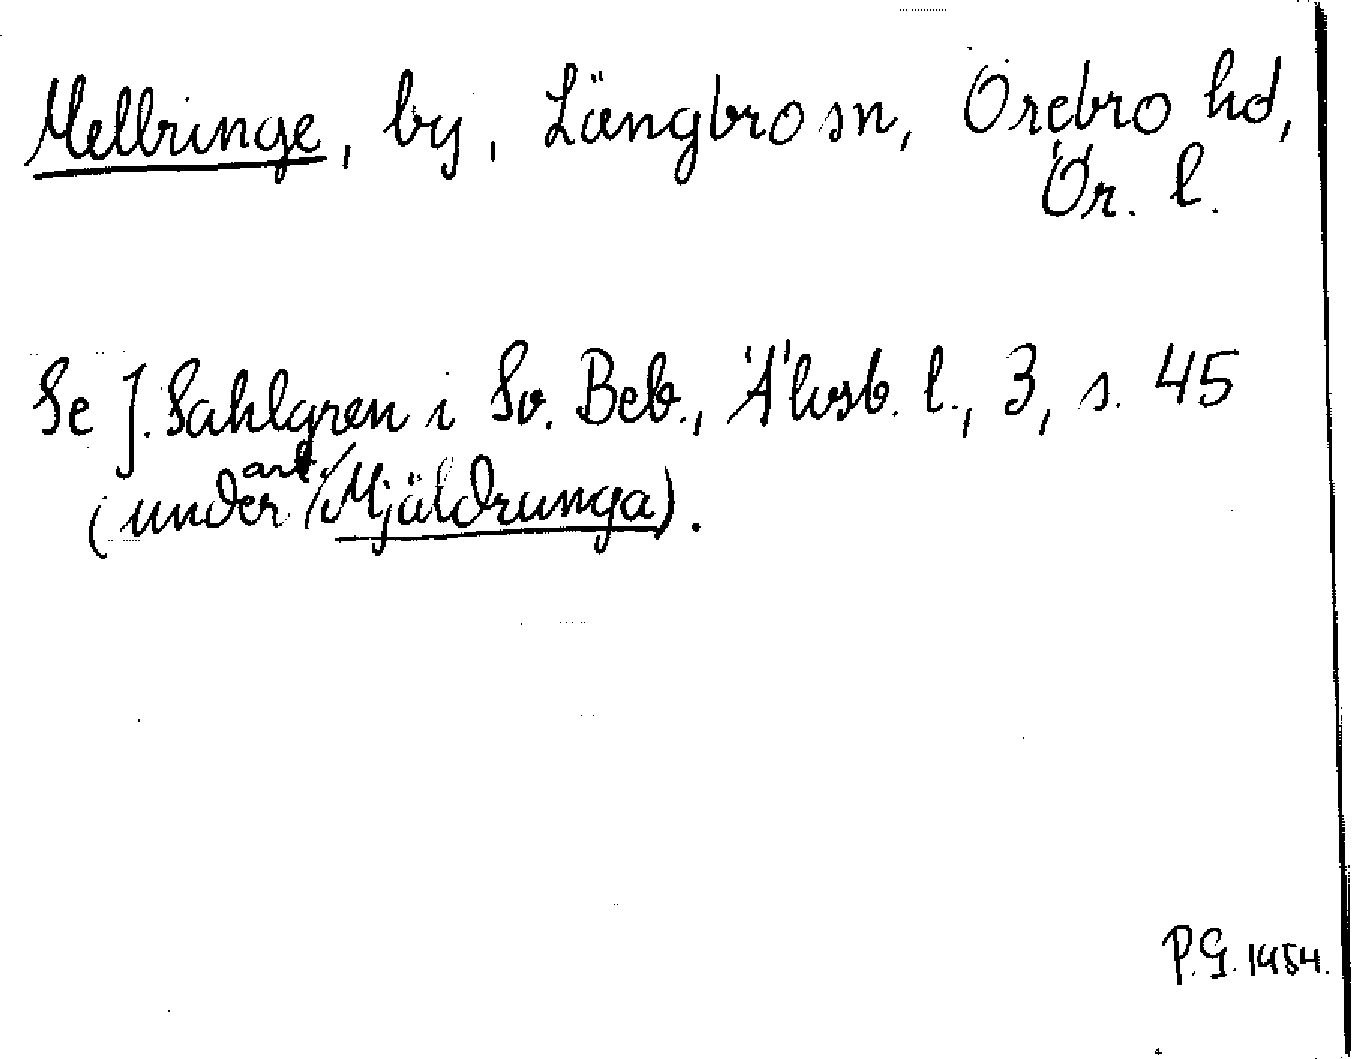 Mellringe, by, Längbro sn, Örebro hd,
Ör. l.
Se J. Sahlgren i Sv. Beb., Älvsb. l., 3, s. 45
(under art. Mjäldrunga).
P.G. 1954.